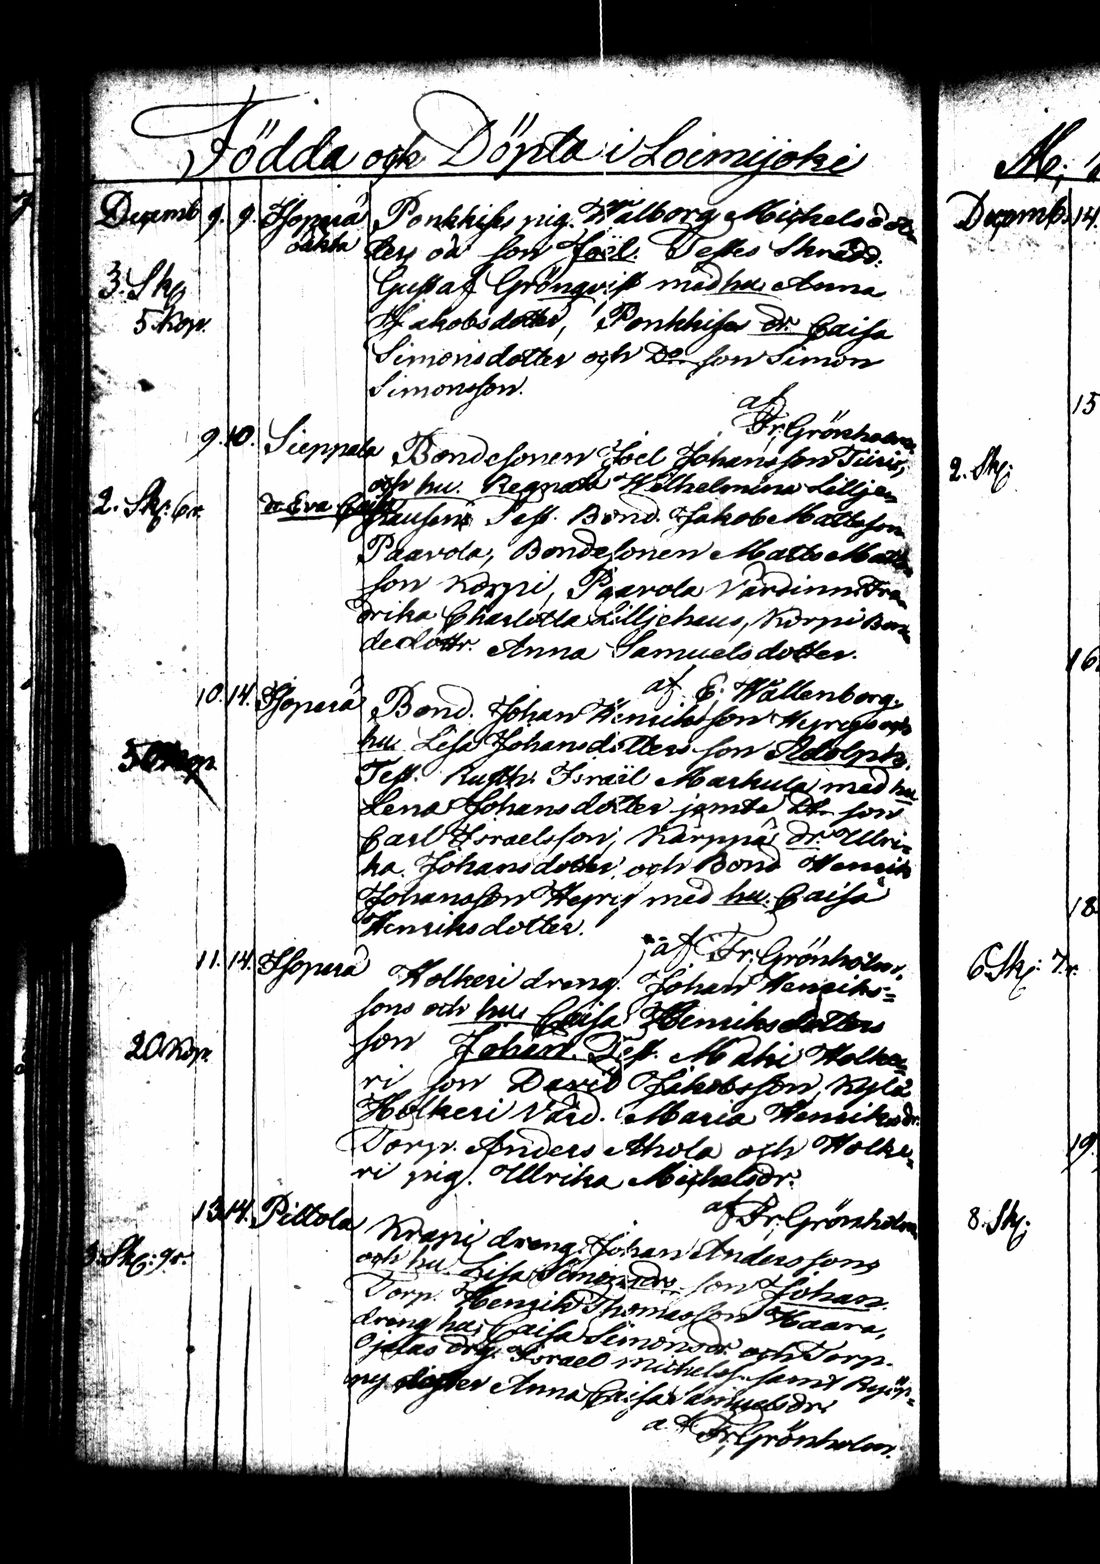 Födda och Döpta i Loimijoki
Decemb 9. 9. Hsoperä Ponkkiss pig. Walborg Michelsdot-
oäkta ters oä son Joël. Testes Skrädd:
3. Skp Gustaf Grönqvist med hu Anna
5 Kop. Jakobsdotter, Ponkkiss dr. Caisa
Simonsdotter och Do son Simon
Simonsson.
af Fr. Grönholm
9. 10. Sieppala Bondesonen Joel Johansson
och hu. Wilhelmina Lillje-
2. Skp. 6 dr Eva Caisa Test. Bond. Jakob Mattsson
Paavola, Bondesonen Matts Matts-
son Korpi, Paavola Värdinn. Fre-
drika Charlotta Lilljehaus, Korpi Bon-
dedottr. Anna Samuelsdotter.
af E. Wallenborg.
10. 14. Hsoperä Bond. Johan Henriksson och
hu Lisa Johansdotters son Adolph.
Test. Israël Markula med hu
Lena Johansdotter jemte son
Carl Israelsson, Kärppä dr. Ulri-
ka Johansdotter, och Bond Henrik
Johansson med hu. Caisa
Henriksdotter.
af Fr. Grönholm.
11. 14. Hsoperä Holkeri dreng. Johan Henriks-
sons och hus Caisa Henriksdotters
20 Kop. son Johan. Test. Holke-
ri son David Jakobsson, Kylä
Holkeri Värd. Maria Henriksdr.
Torp. Anders Ahola och Holke-
ri pig. Ulrika Michelsdr.
af Fr. Grönholm
13. 14. Piltola Krapi dreng. Johan Anderssons
3. Skp: 9 och hu. Lisa Simonsdrs son Johan.
Torp. Henrik Thomasson Haara,
dreng hu Caisa Simonsdr. och Torp.
Ojalas drg. Israel Michelss. samt
Anna Caisa Samuelsdr.
af Fr. Grönholm.
M;
Decemb. 14.
15
2. Skp:
16
18
6 Skp: 7
19.
8. Skp: